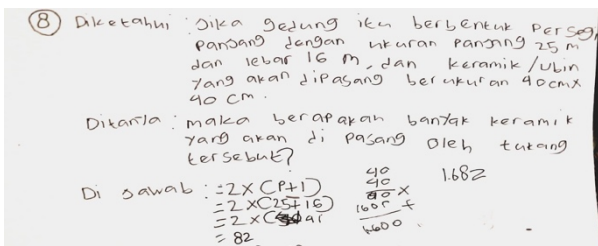 8 Diketahui : Jika gedung itu berbentuk persegi
panjang dengan ukuran panjang 25 m
dan lebar 16 m, dan keramik/ubin
yang akan dipasang berukuran 40cmx
40 cm.
Ditanya : maka berapakah banyak keramik
yang akan di pasang oleh tukang
tersebut?
Di jawab : = 2 x (P+l)
= 2 x (25+16)
= 2 x (
= 82
40
40
x
+
1600
1.682